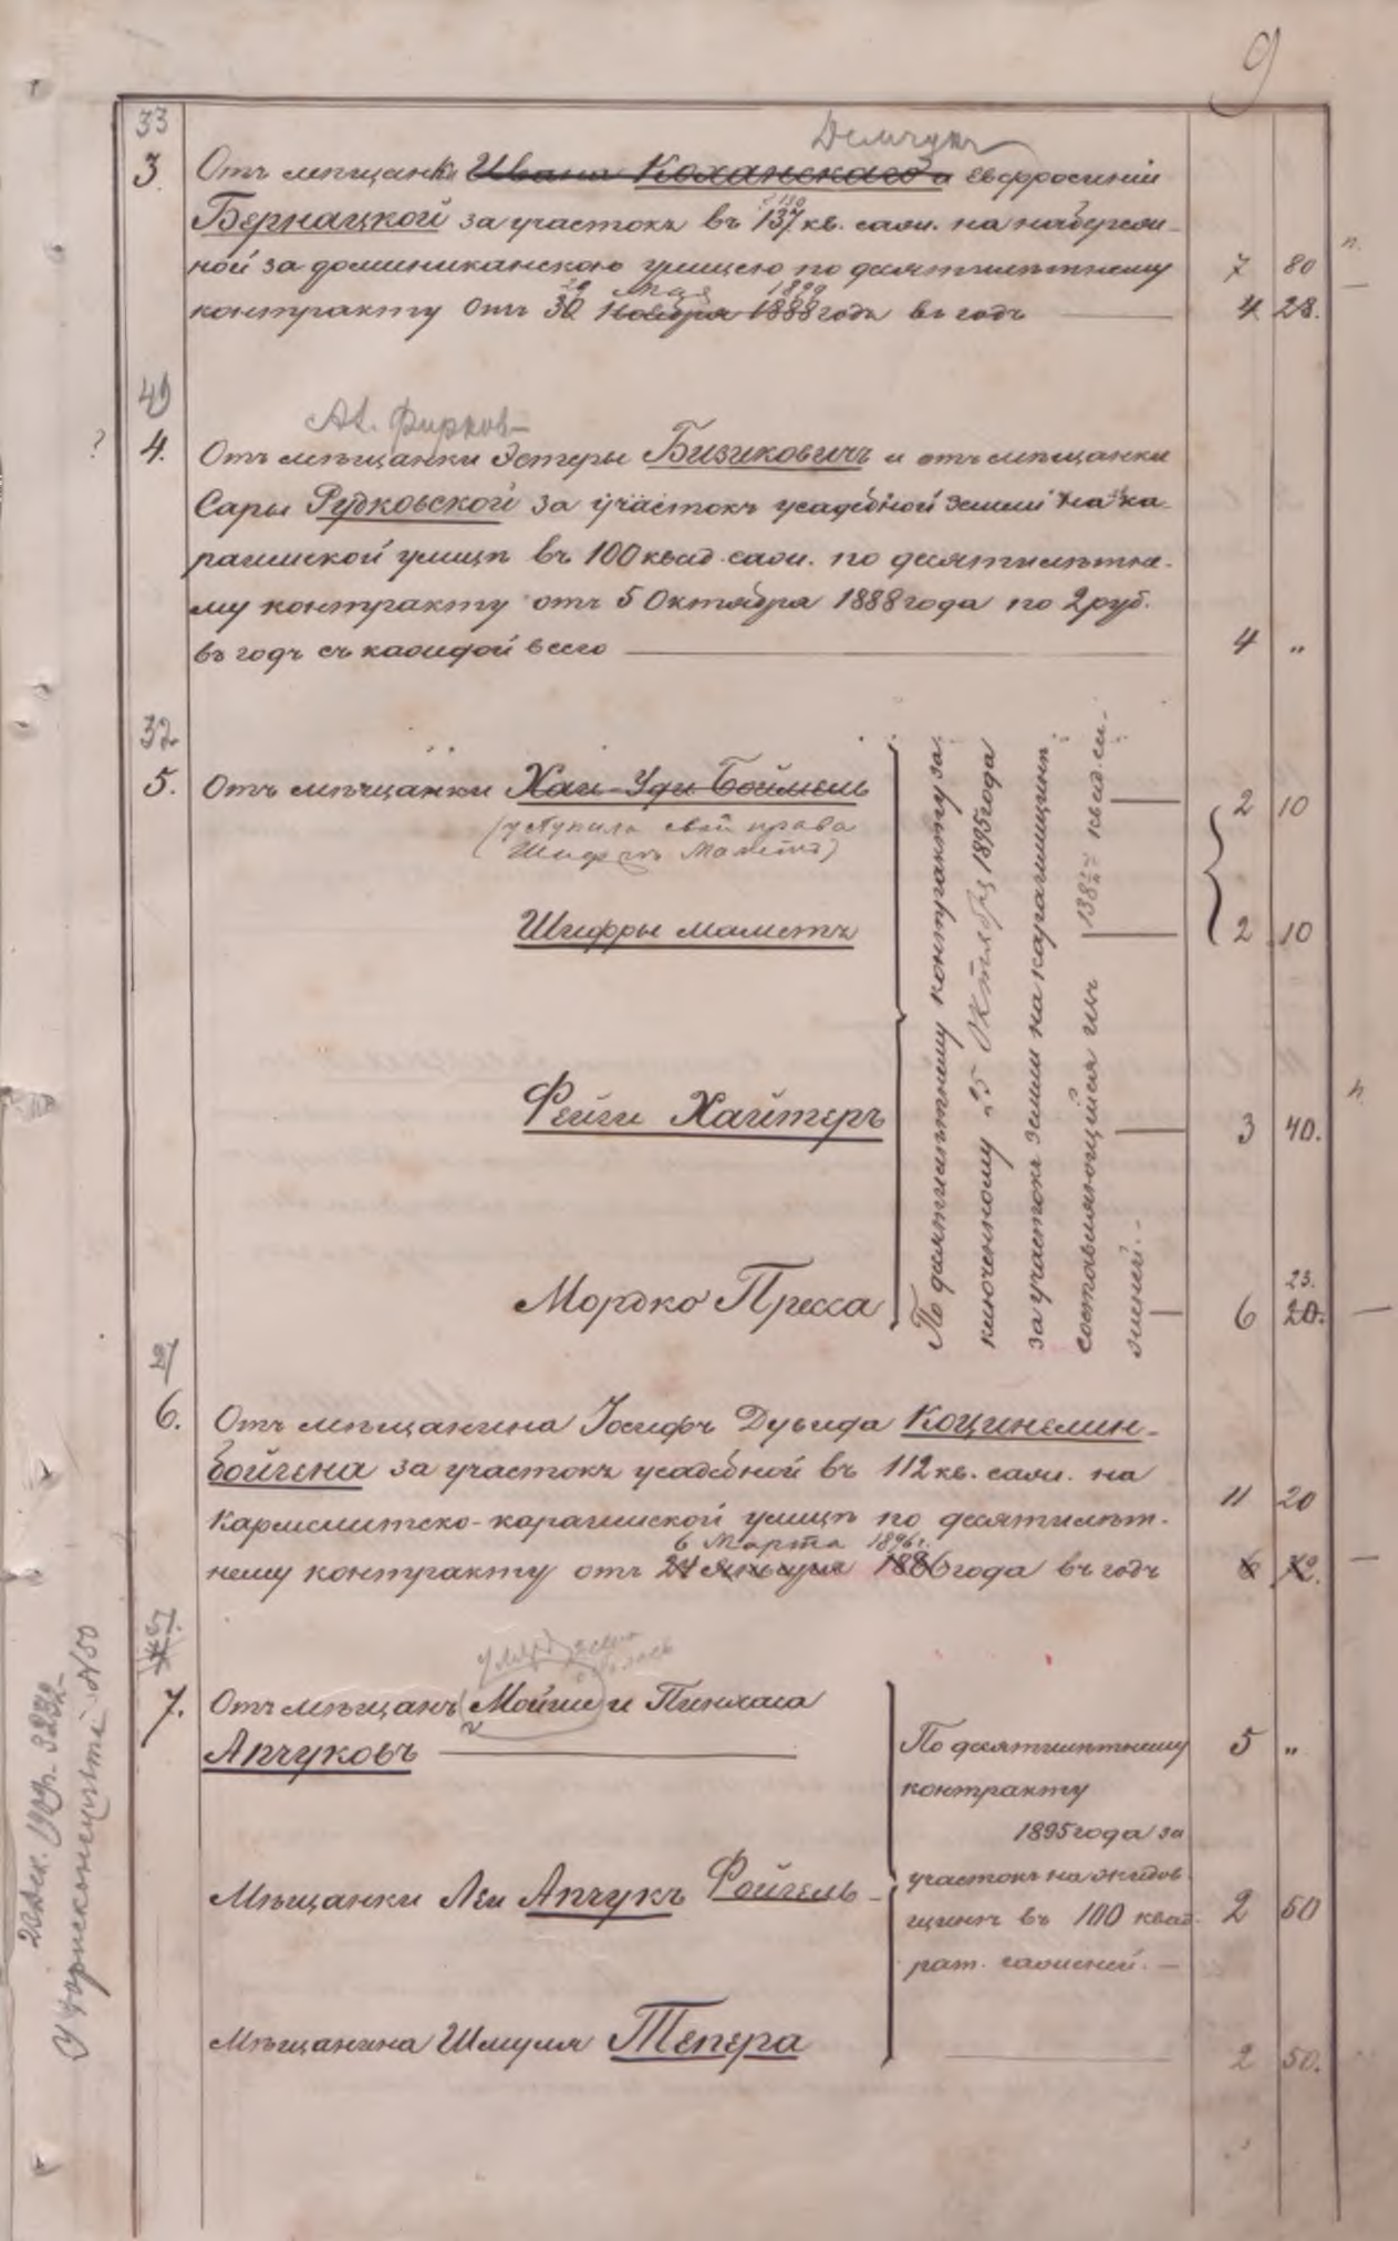 9
33
Демчукъ
3. Отъ мѣщанки Ивана Коханскаго и Евфросиніи
130
Бернацкой за участокъ въ 137 кв. саж. на набереж-
ной за доминиканскою улицею по десятилѣтнему 7 80
29 мая 1899
контракту отъ 30 Ноября 1888 года въ годъ 4 28.
49
Ав. Фирков-
? 4. Отъ мѣщанки Эстеры Бизиковичъ и отъ мѣщанки
Сары Рудковской за участокъ усадебной земли на ка-
раимской улицѣ въ 100 квад. саж. по десятилѣтне-
му контракту отъ 5 Октября 1888 года по 2 руб.
въ годъ съ каждой всего 4 "
32
5. Отъ мѣщанки Хаи-Уди Боймель 2 10
(уступила свои права
Шифрѣ Маметъ)
Шифры Маметъ 2 10
Фейги Хайтеръ 3 40.
23.
Мордко Пресса 6 20.
По десятилѣтнему контракту за-
ключенному 25 Октября 1895 года
за участокъ земли на караимщинѣ
составляющійся изъ 138 квад. са-
женей.-
21
6. Отъ мѣщанина Іосифъ Дувида Коцинемин-
бойгена за участокъ усадебной въ 112 кв. саж. на
Кармелитско-караимской улицѣ по десятилѣт- 11 20
6 Марта 1896 г.
нему контракту отъ 24 Января 1886 года въ годъ 6 72.
умеръ
7. Отъ мѣщанъ (Мойши) и Пинхаса
Апчуковъ 5 "
Мѣщанки Леи Апчукъ Фойгель 2 50
Мѣщанина Шмуля Тепера 2 50.
По десятилѣтнему
контракту
1895 года за
участокъ на жидов-
щинѣ въ 100 квад-
рат. саженей.—
20 дек. 1909 г. 3232
У юрисконсульта №50